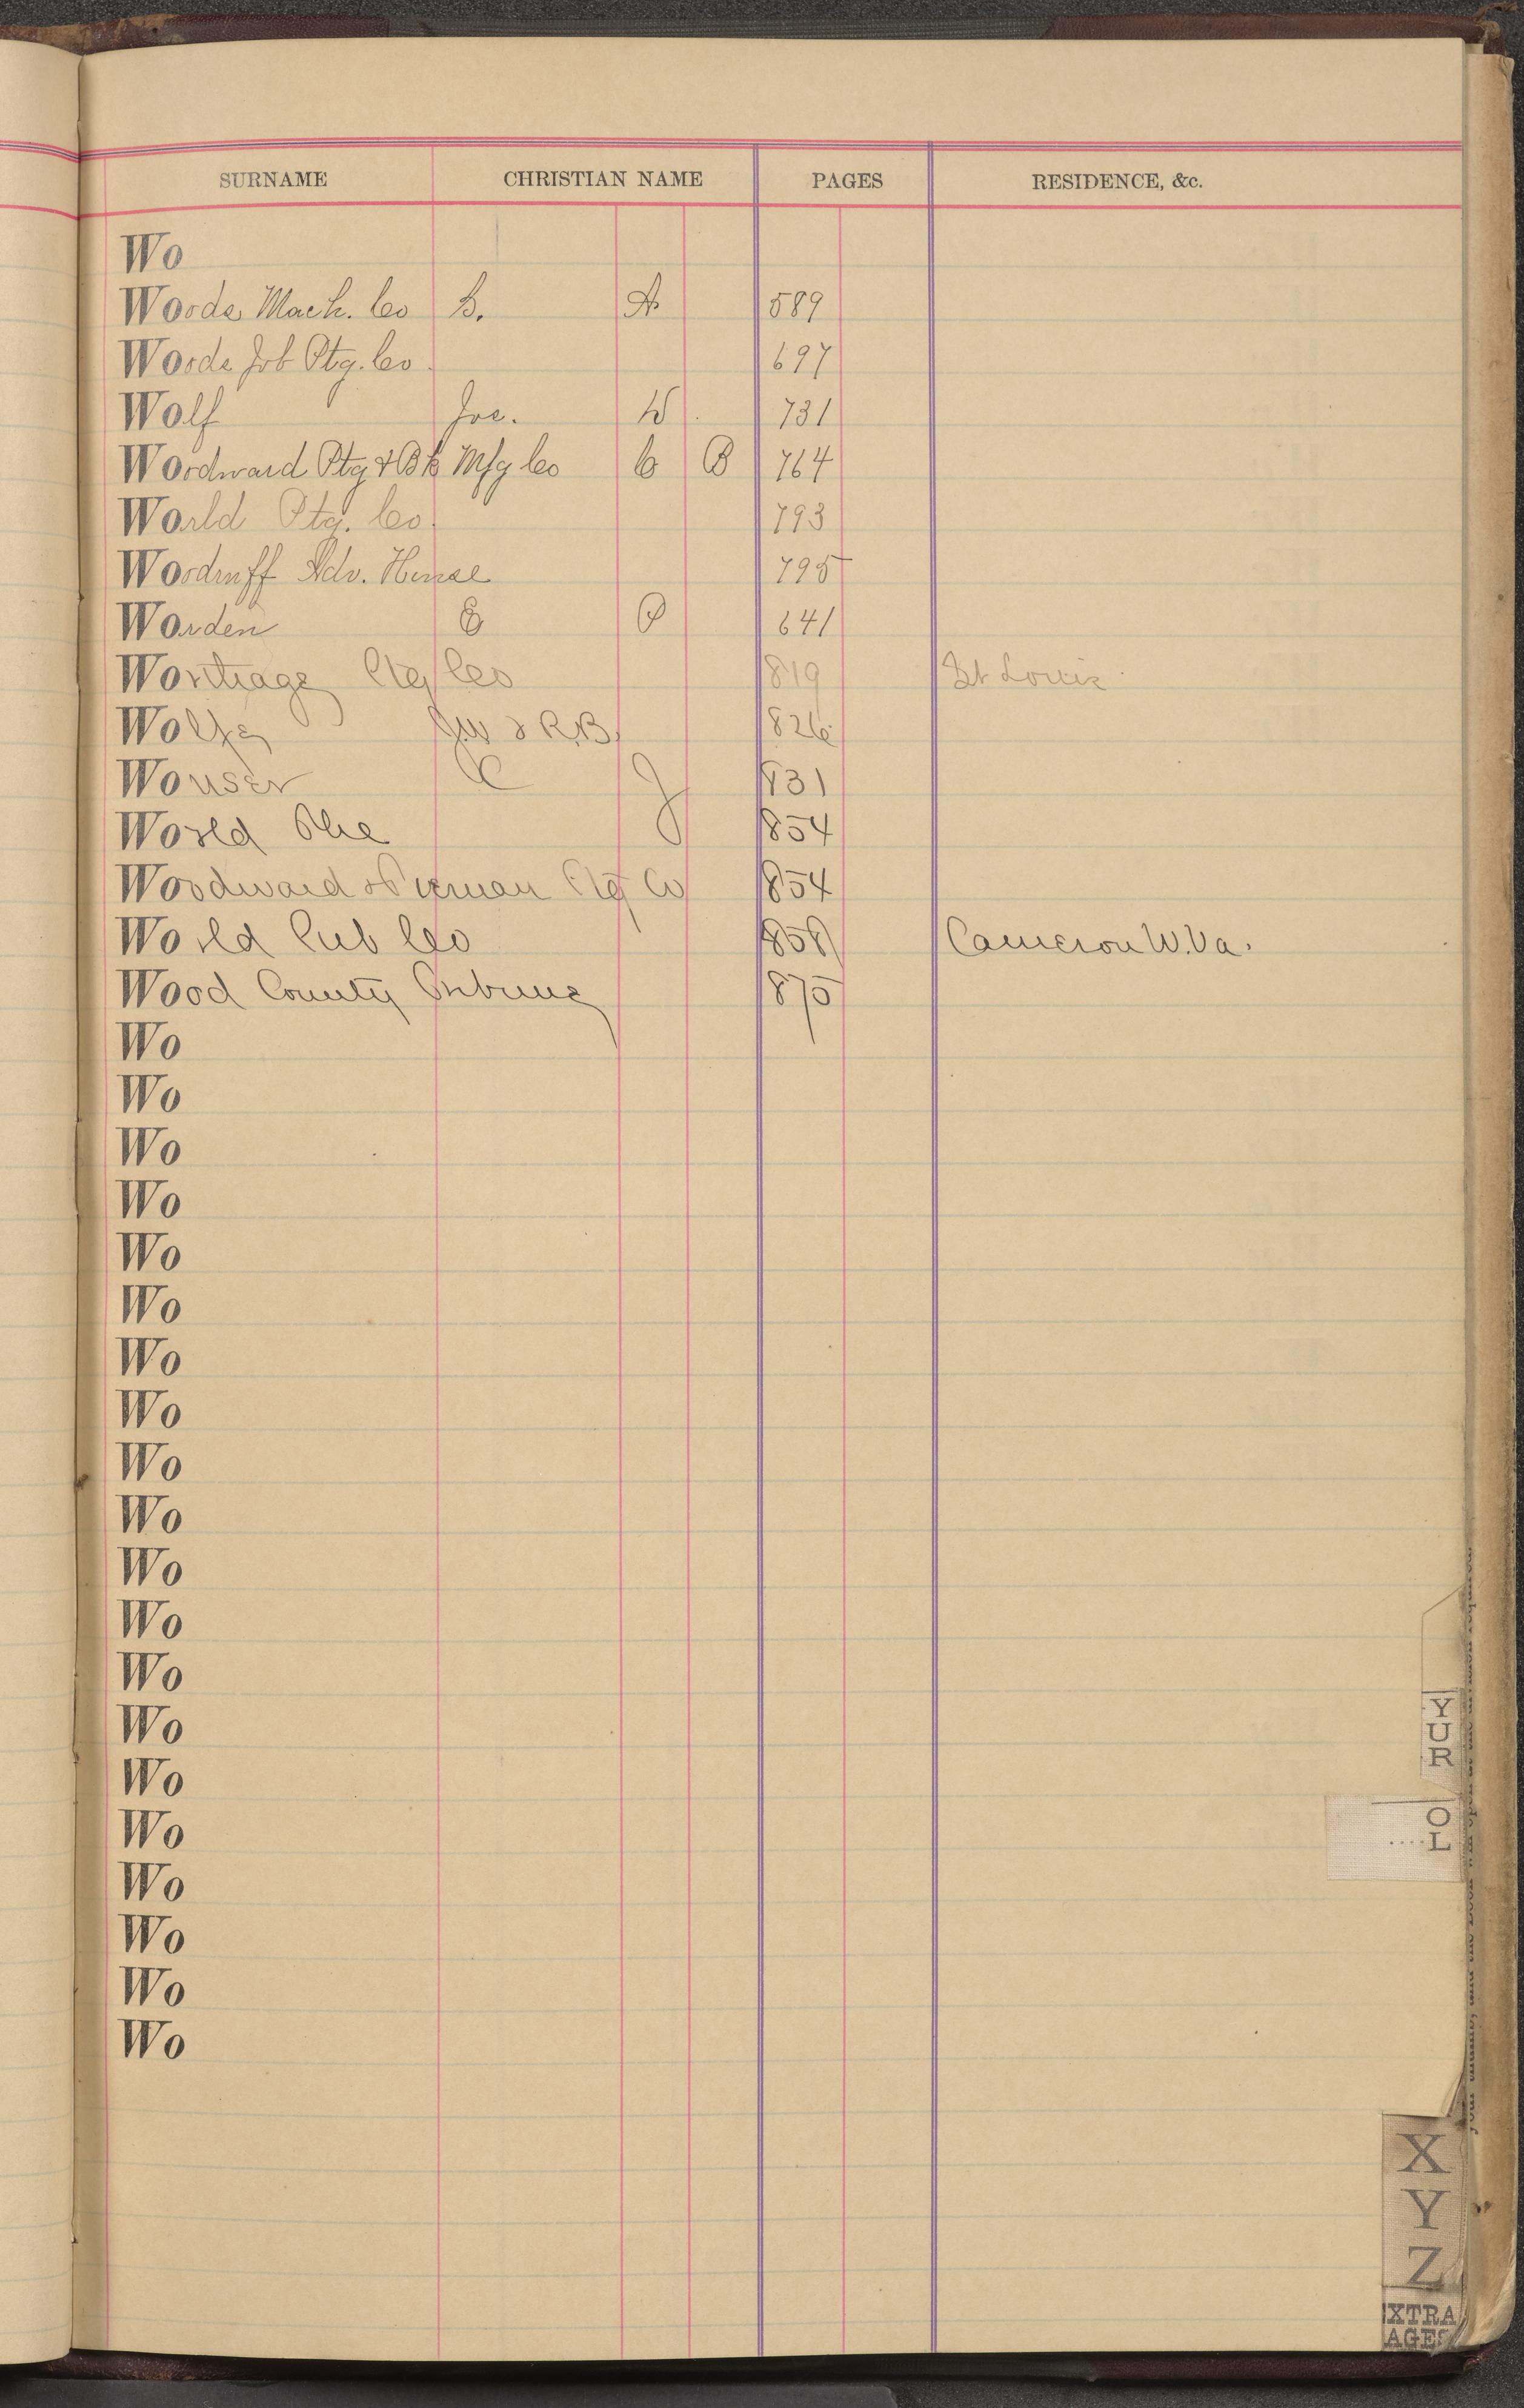 SURNAME CHRISTIAN NAME PAGES RESIDENCE, &c.
Wo
Woods Mach. Co S. A 589
Woods Job Ptg. Co. 697
Wolf Jos. W. 731
Woodward Ptg & Bk Mfg Co C B 764
World Ptg. Co. 793
Woodruff Adv. House 795
Worden E P 641
Ptg Co 819 St Louis
Wolfe J.W & R.B. 826
Wouser C J 831
World The 854
Woodward & Tiernan Ptg Co 854
World Pub Co 858 Cameron W.Va.
Wood County Tribune 875
Wo
Wo
Wo
Wo
Wo
Wo
Wo
Wo
Wo
Wo
Wo
Wo
Wo
Wo
Wo
Wo
Wo
Wo
Wo
Wo
YUR
OL
X
Y
Z
XTRA
AGES